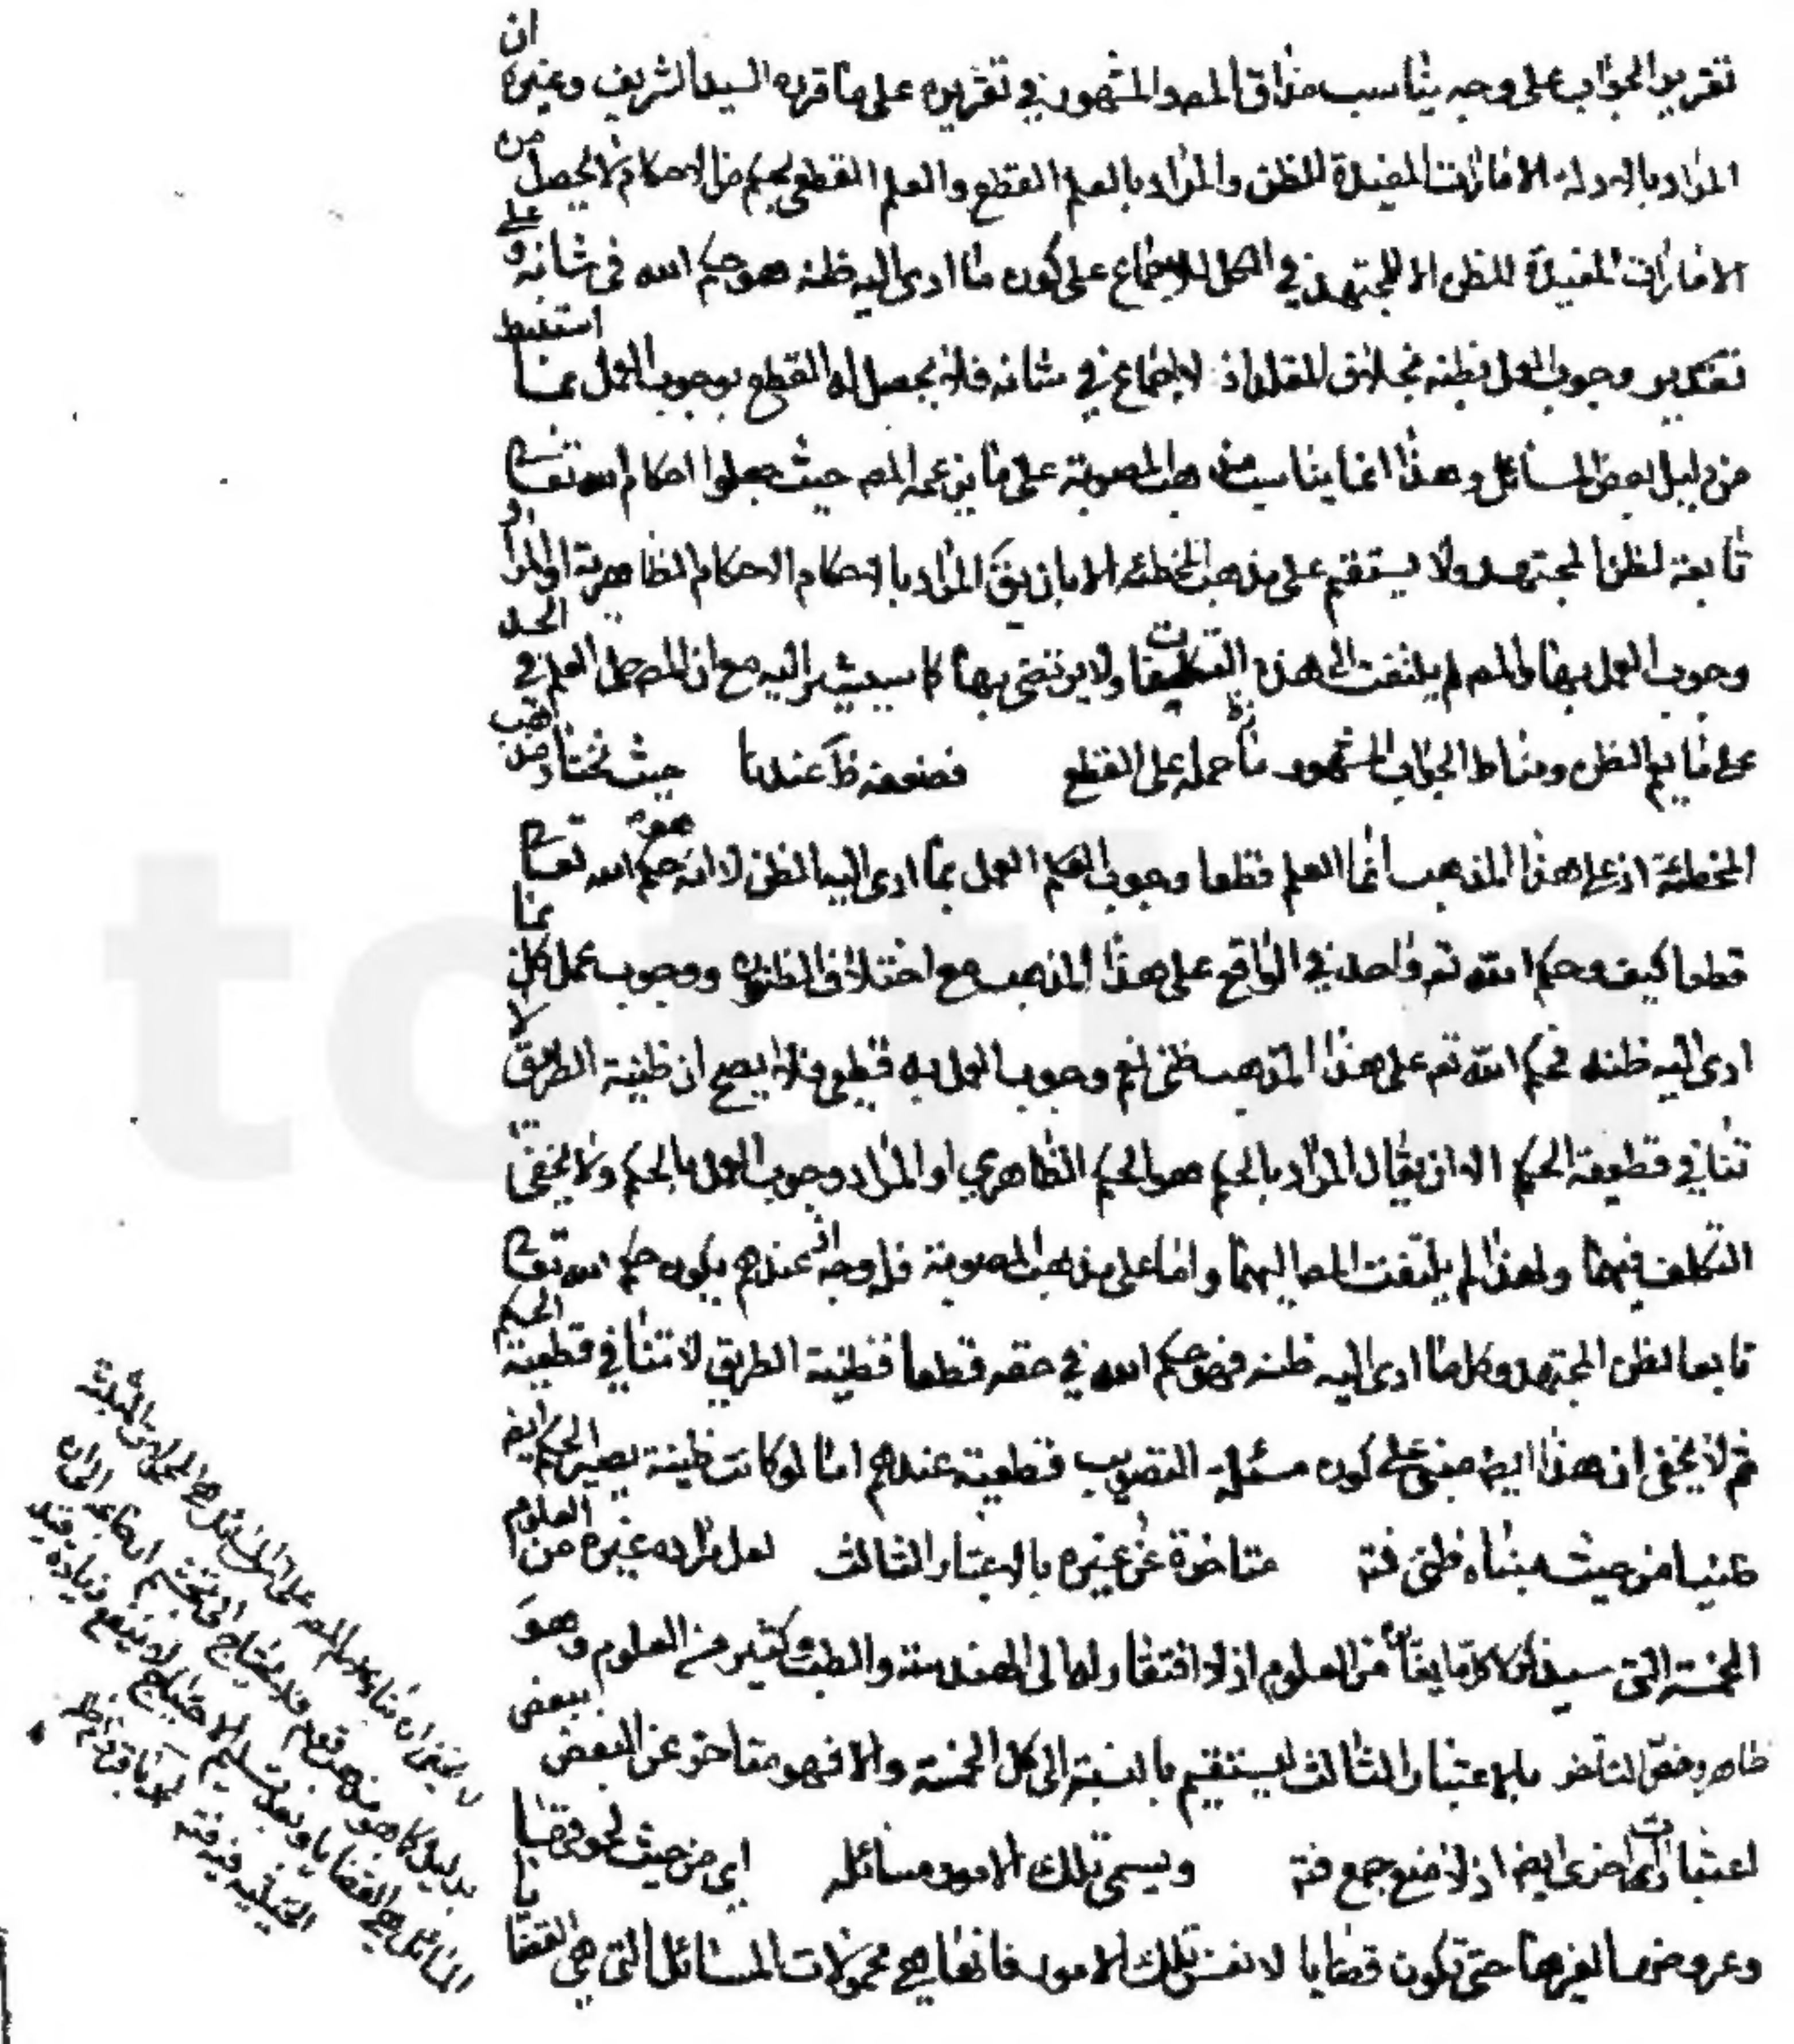 تقرير الجواب على وجه يناسب مذاق المصـ والمشهور في تقريره على ما قرره السيد الشريف وغيره ان
المراد بالادلة الامارات المفيدة للظن والمراد بالعلم القطع والعلم القطعي بحكم من الاحكام لا يحصل من
الامارات المفيدة للظن الا للمجتهد في الكل للاجماع على كون ما ادى اليه ظنه هو حكم الله في شانه و على
تقدير وجوب العمل بظنه بخلاف المقلد اذ لا اجماع في شانه فلا يحصل له القطع بوجوب العمل بما استنبط
من دليل بعض المسائل وهذا انما يناسب مذهب المصوبة على ما يزعمه المصـ حيث جعلوا احكام الله تعالى
تابعة لظن المجتهد ولا يستقيم على مذهب المخطئة الا بان يقَ المراد بالاحكام الاحكام الظاهرية او المراد
وجوب العمل بها والمصـ لم يلتفت الى هذه التكليفات ولا يرتضي بها كما سيشير اليه مع ان المصـ حمل العلم في الحد
على ما يعم الظن ومناط الجواب المشهور حمله على القطع فضعفه ظَ عندنا حيث نختار مذهب
المخطئة اذ على هذا المذهب انما العلم قطعا وجوب العمل بما ادى اليه الظن لا انه حكم الله تعالى
قطعا كيف وحكم الله تع واحد في الواقع على هذا المذهب مع اختلاف الظنون ووجوب عمل كل بما
ادى اليه ظنه فحكم الله تع على هذا المذهب ظني نعم وجوب العمل به قطعي فلا يصح ان ظنية الطريق لا
تنافي قطعية الحكم الا ان يقال المراد بالحكم هو الحكم الظاهري او المراد وجوب العمل بالحكم ولا يخفى
التكلف فيهما ولهذا لم يلتفت المصـ اليهما واما على مذهب المصوبة فله وجه اذ عندهم يكون حكم الله تعالى
تابعا لظن المجتهد وكل ما ادى اليه ظنه فهو حكم الله في حقه قطعا فظنية الطريق لا تنافي قطعية الحكم
ثم لا يخفى ان هذا ايضا مبني على كون مسئلة التصويب قطعية عندهم اما لو كانت ظنية يصير الحكم ايضا
ظنيا من حيث مبناه ظني فتد متاخرة عن غيره بالاعتبار الثالث لعل مراده غيره من العلوم
الخمسة التي سيذكر من العلوم اذ لا افتقار له الى الهندسة والطب وكثير من العلوم وهو
ظاهر التاخر بالاعتبار الثالث ليستقيم بالنسبة الى كل الخمسة والا فهو متاخر عن البعض ببعض
اعتبارات اخرى ايضا اذ لا منع جمع فتد ويسمى تلك الامور مسائله اي من حيث لحوقها
وعروضها لغيرها حتى تكون قضايا لا نفس تلك الامور فانها هي محمولات المسائل التي هي القضايا
المسائل هي القضايا وبعد تسليم الاحتياج